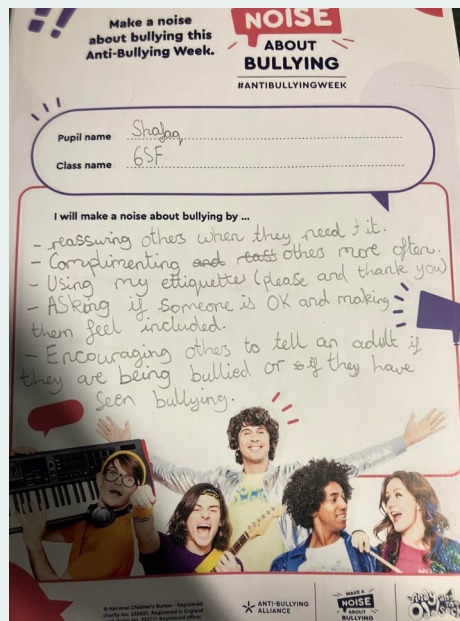 Make a noise
about bullying this
Anti-Bullying Week.
NOISE
ABOUT
BULLYING
#ANTIBULLYINGWEEK
Pupil name Shafaq
Class name 6SF
I will make a noise about bullying by ...
- reassuring others when they need it.
- Complimenting and others more often.
- Using my ettiquette (please and thank you)
- Asking if someone is OK and making
them feel included.
- Encouraging others to tell an adult if
they are being bullied or if they have
seen bullying.
© National Children's Bureau - Registered
charity No. 258825. Registered in England
Registered office:
ANTI-BULLYING
ALLIANCE
MAKE A
NOISE
ABOUT
BULLYING